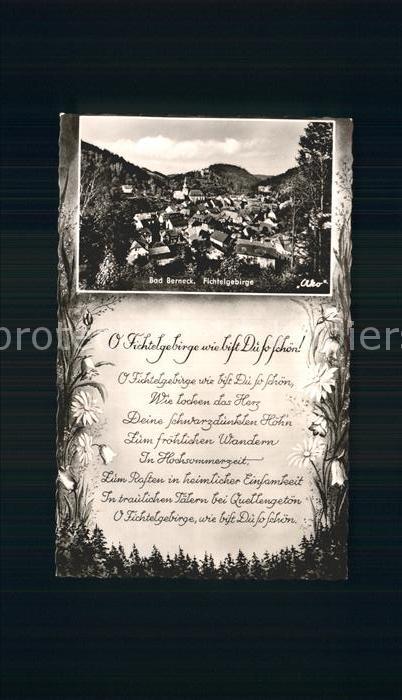 Bad Berneck, Fichtelgebirge
„Ako"
O Fichtelgebirge wie bist Du so schön!
O Fichtelgebirge wie bist Du so schön,
Wie locken das Herz
Deine schwarzdunklen Höh'n
Zum fröhlichen Wandern
In Hochsommerzeit,
Zum Rasten in heimlicher Einsamkeit
In traulichen Tälern bei Quellengetön
O Fichtelgebirge, wie bist Du so schön.